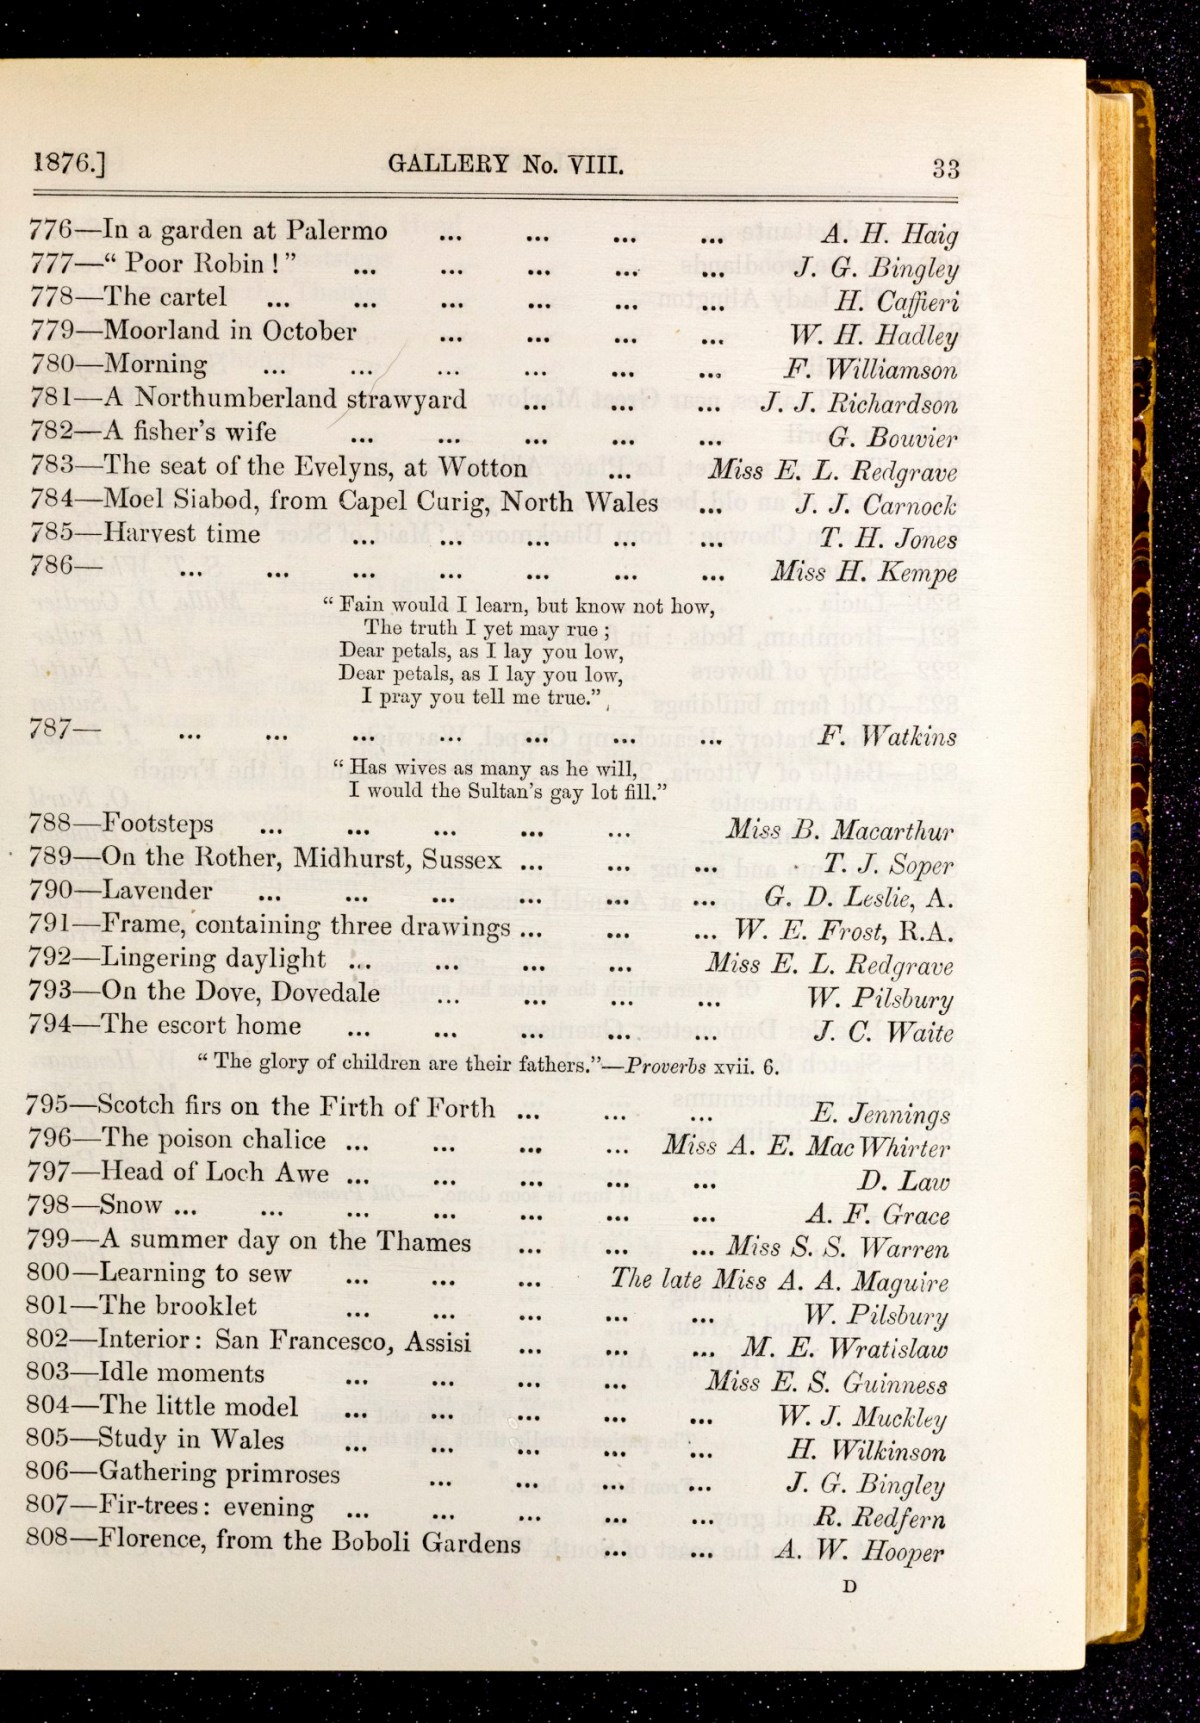 1876.] GALLERY No. VIII. 33
776—In a garden at Palermo ... ... ... ... A. H. Haig
777—“ Poor Robin ! ” ... ... ... ... ... J. G. Bingley
778—The cartel ... ... ... ... ... ... H. Caffieri
779—Moorland in October ... ... ... ... W. H. Hadley
780—Morning ... ... ... ... ... ... F. Williamson
781—A Northumberland strawyard ... ... ... J. J. Richardson
782—A fisher’s wife ... ... ... ... ... G. Bouvier
783—The seat of the Evelyns, at Wotton ... Miss E. L. Redgrave
784—Moel Siabod, from Capel Curig, North Wales ... J. J. Carnock
785—Harvest time ... ... ... ... ... T. H. Jones
786— ... ... ... ... ... ... ... Miss H. Kempe
“ Fain would I learn, but know not how,
The truth I yet may rue ;
Dear petals, as I lay you low,
Dear petals, as I lay you low,
I pray you tell me true.”
787— ... ... ... ... ... ... ... F. Watkins
“ Has wives as many as he will,
I would the Sultan’s gay lot fill.”
788—Footsteps ... ... ... ... ... Miss B. Macarthur
789—On the Rother, Midhurst, Sussex ... ... ... T. J. Soper
790—Lavender ... ... ... ... ... ... G. D. Leslie, A.
791—Frame, containing three drawings ... ... ... W. E. Frost, R.A.
792—Lingering daylight ... ... ... ... Miss E. L. Redgrave
793—On the Dove, Dovedale ... ... ... ... W. Pilsbury
794—The escort home ... ... ... ... ... J. C. Waite
“ The glory of children are their fathers.”—Proverbs xvii. 6.
795—Scotch firs on the Firth of Forth ... ... ... E. Jennings
796—The poison chalice ... ... ... ... Miss A. E. MacWhirter
797—Head of Loch Awe ... ... ... ... ... D. Law
798—Snow ... ... ... ... ... ... ... A. F. Grace
799—A summer day on the Thames ... ... ... Miss S. S. Warren
800—Learning to sew ... ... ... The late Miss A. A. Maguire
801—The brooklet ... ... ... ... ... W. Pilsbury
802—Interior : San Francesco, Assisi ... ... ... M. E. Wratislaw
803—Idle moments ... ... ... ... Miss E. S. Guinness
804—The little model ... ... ... ... ... W. J. Muckley
805—Study in Wales ... ... ... ... ... H. Wilkinson
806—Gathering primroses ... ... ... ... J. G. Bingley
807—Fir-trees : evening ... ... ... ... ... R. Redfern
808—Florence, from the Boboli Gardens ... ... A. W. Hooper
D